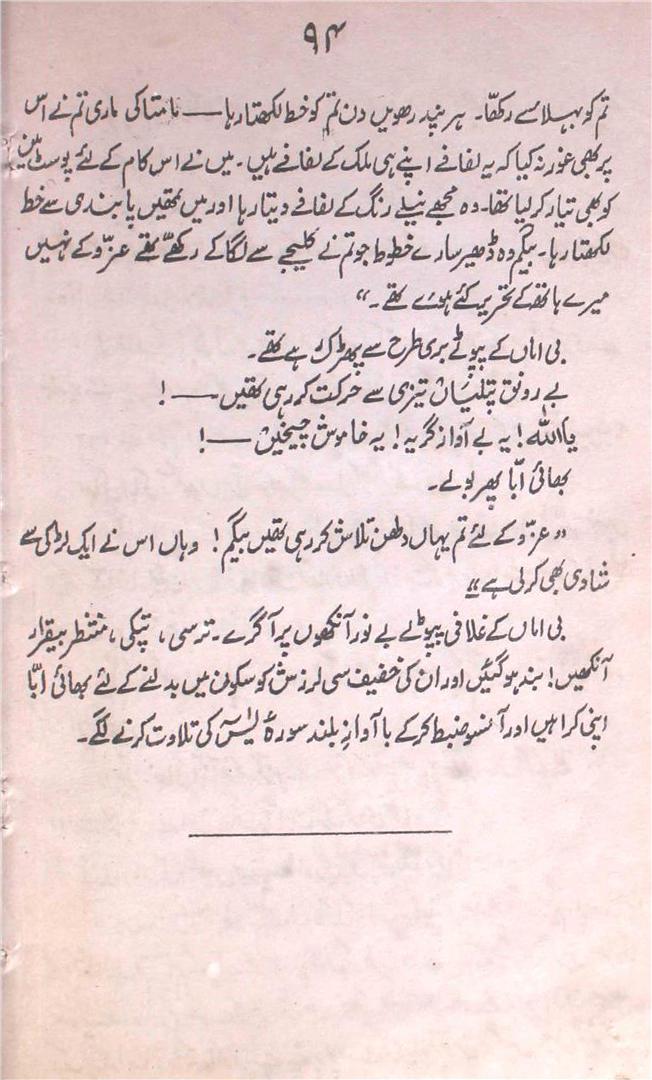 ۹۴
تم کو بہلائے رکھّا۔ ہر پندرھویں دن تم کو خط لکھتا رہا — مامتا کی ماری تم نے اس
پر کبھی غور نہ کیا کہ یہ لفافے اپنے ہی ملک کے لفافے ہیں۔ میں نے اس کام کے لئے پوسٹ مین
کو بھی تیار کر لیا تھا۔ وہ مجھے نیلے رنگ کے لفافے دیتا رہا اور میں تمھیں پابندی سے خط
لکھتا رہا۔ بیگم وہ ڈھیر سارے خطوط جو تم نے کلیجے سے لگا کے رکھے تھے عزّو کے نہیں
میرے ہاتھ کے تحریر کئے ہوئے تھے۔"
بی اماں کے پپوٹے بری طرح سے پھڑک رہے تھے۔
بے رونق پتلیاں تیزی سے حرکت کر رہی تھیں — !
یا اللہ! یہ بے آواز گریہ! یہ خاموش چیخیں — !
بھائی ابّا پھر بولے۔
"عزّو کے لئے تم یہاں دلھن تلاش کر رہی تھیں بیگم! وہاں اس نے ایک لڑکی سے
شادی بھی کر لی ہے"
بی اماں کے غلافی پپوٹے بے نور آنکھوں پر آ گرے۔ ترسی، تپکی، منتظر بیقرار
آنکھیں! بند ہو گئیں اور ان کی خفیف سی لرزش کو سکون میں بدلنے کے لئے بھائی ابّا
اپنی کراہیں اور آنسو ضبط کر کے با آوازِ بلند سورۂ یٰسٓ کی تلاوت کرنے لگے۔